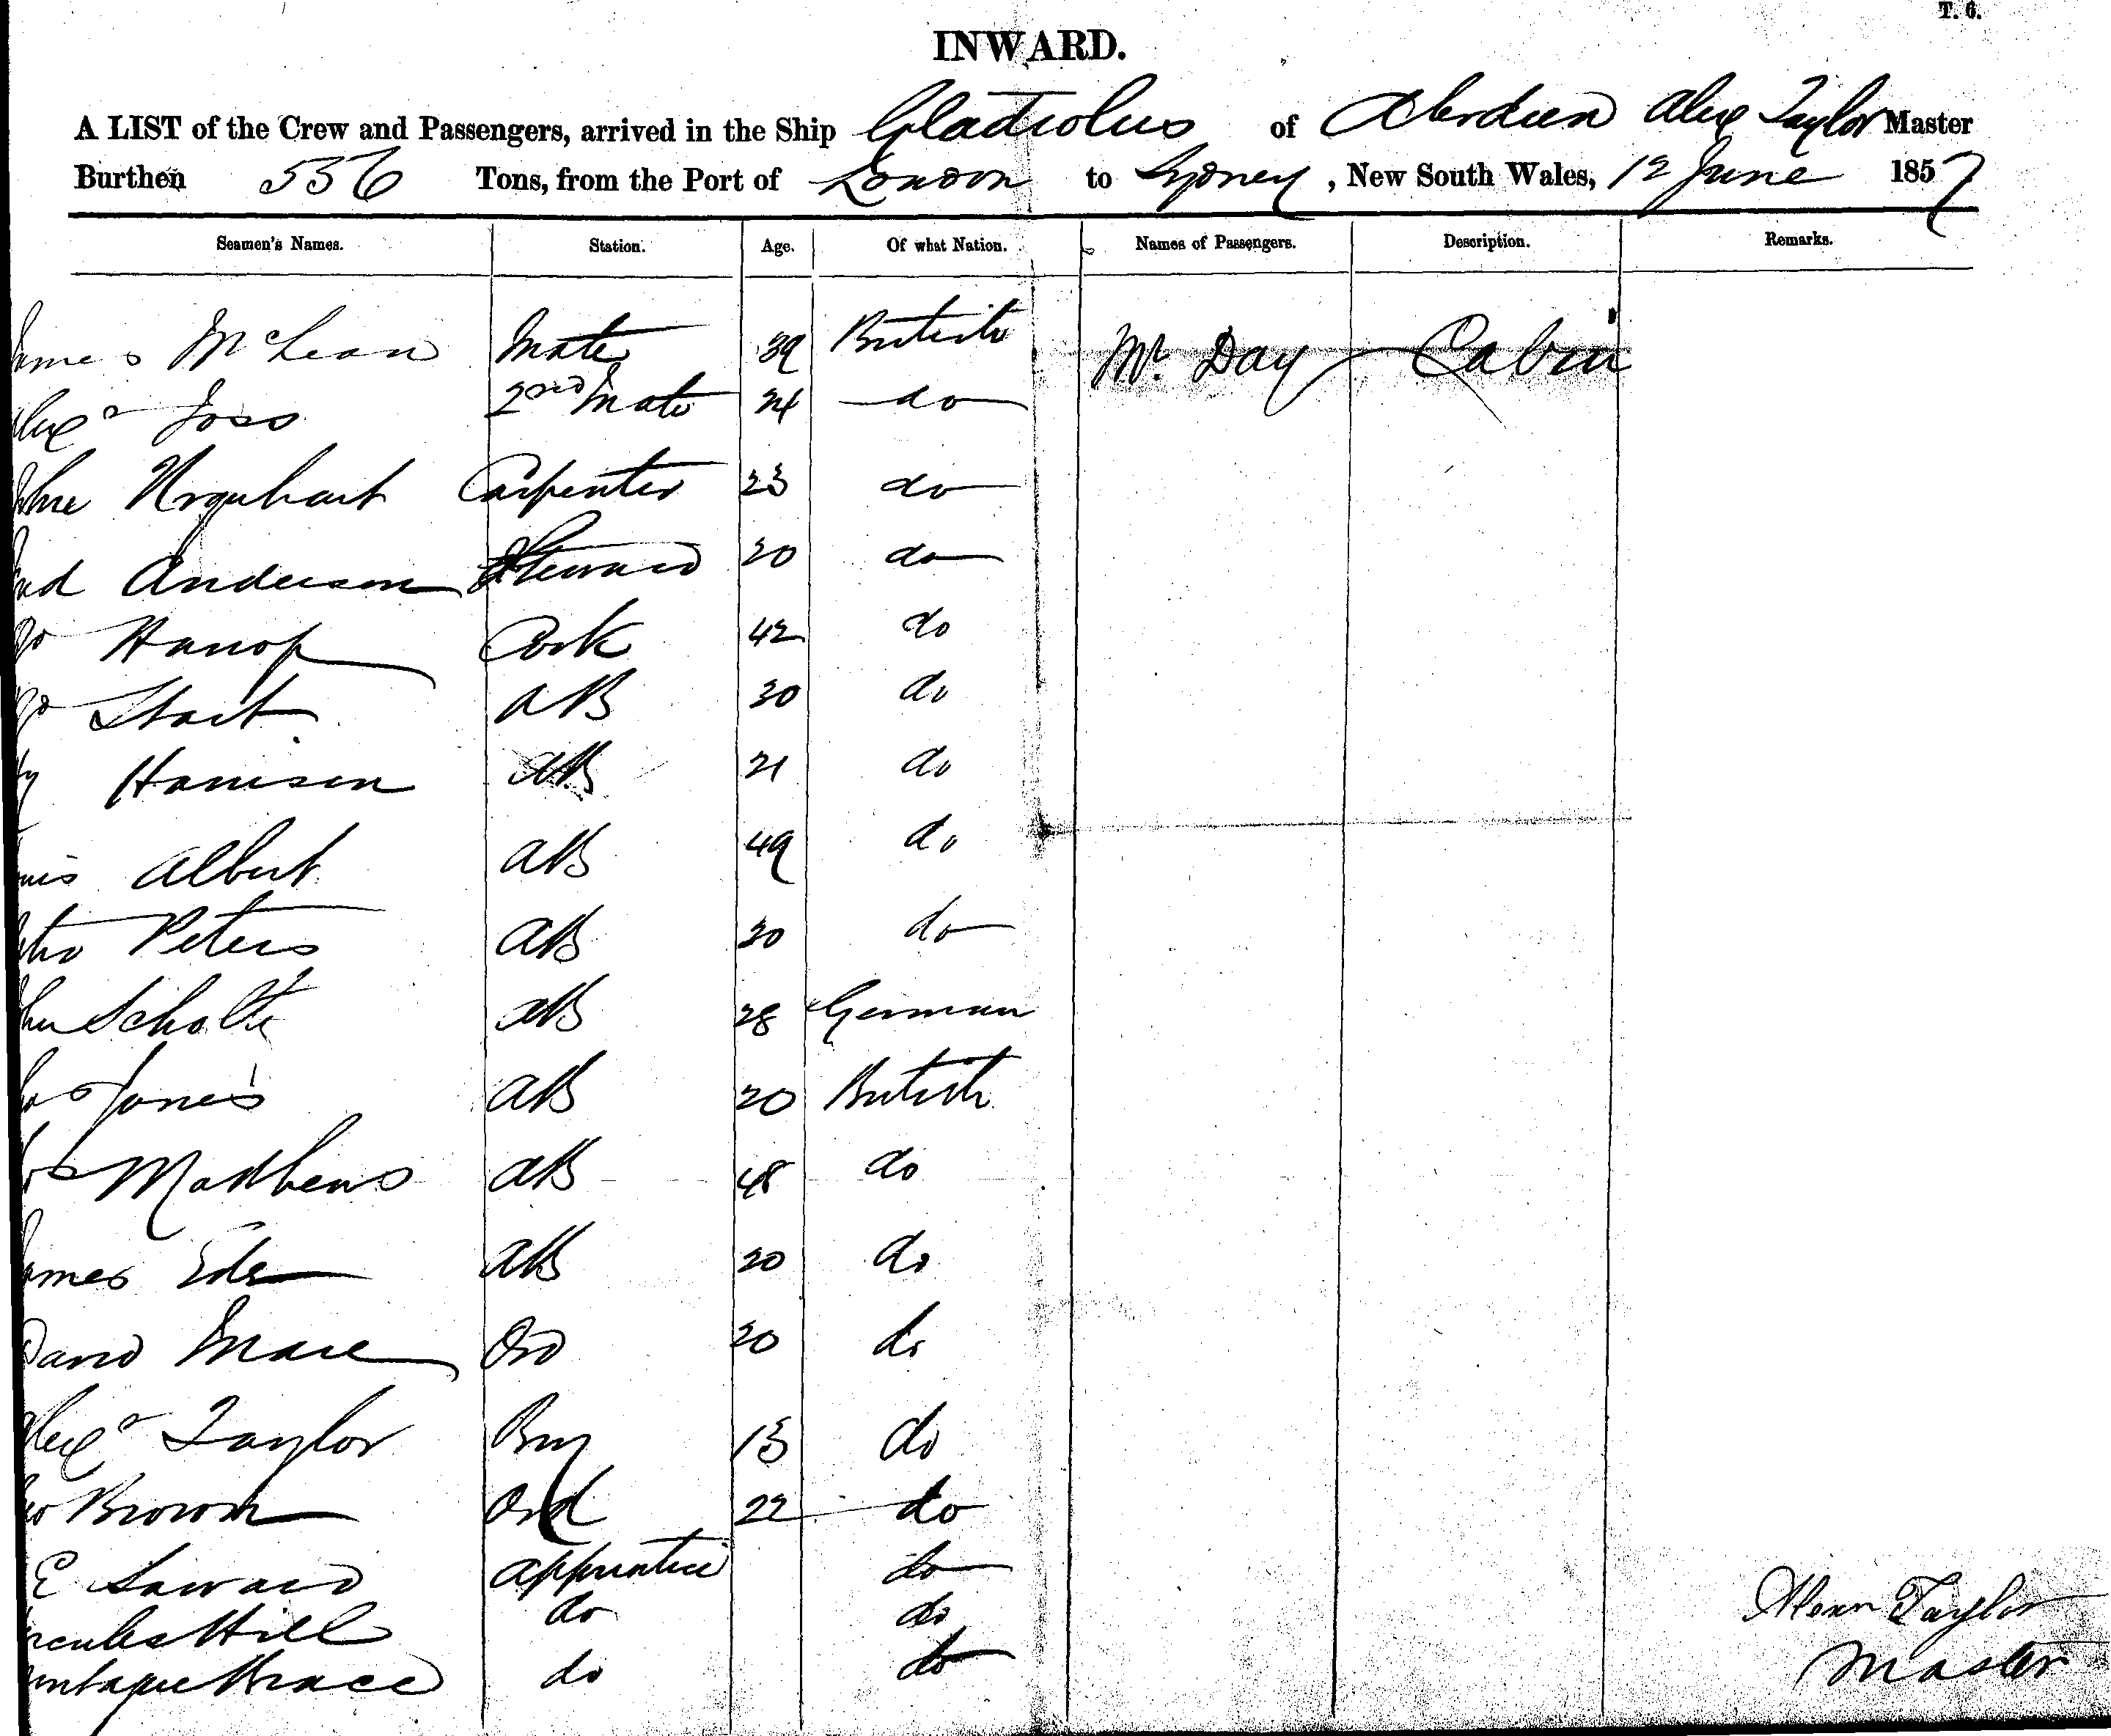 T. 6.
INWARD.
A LIST of the Crew and Passengers, arrived in the Ship Gladiolus of Aberdeen Alex Taylor Master
Burthen 556 Tons, from the Port of London to Sydney, New South Wales, 12 June 1857
Seamen's Names. Station. Age. Of what Nation. Names of Passengers. Description. Remarks.
James McLean Mate 39 British Mr. Day Cabin
Alexr Joss 2nd Mate 24 do
Urquhart Carpenter 23 do
Anderson Steward 20 do
Cook 42 do
Start AB 30 do
Harrison AB 21 do
Albert AB 49 do
Peters AB 30 do
Scholte AB 28 German
Jones AB 20 British
Matthews AB 48 do
James Ede AB 20 do
David Ord 20 do
Alexr Taylor Boy 13 do
Brown Ord 22 do
E Saward apprentice do
Hill do do
do do
Alexr Taylor
Master